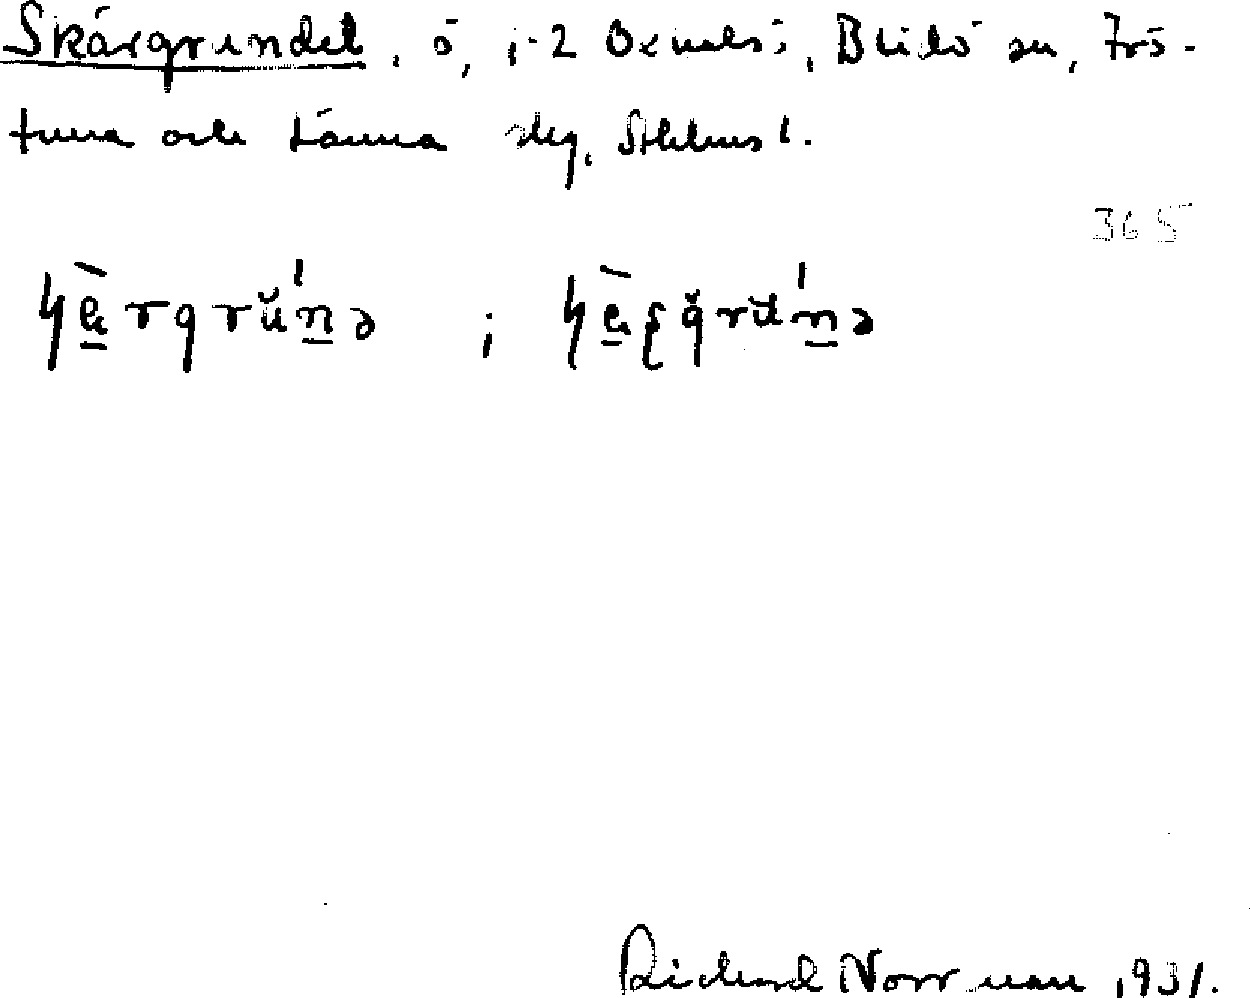 Skärgrundet, ö, i 2 Oxhalsö, Blidö sn, Frö-
tuna och Länna slg, Sthlms l.
365
Richard Norrman 1931.